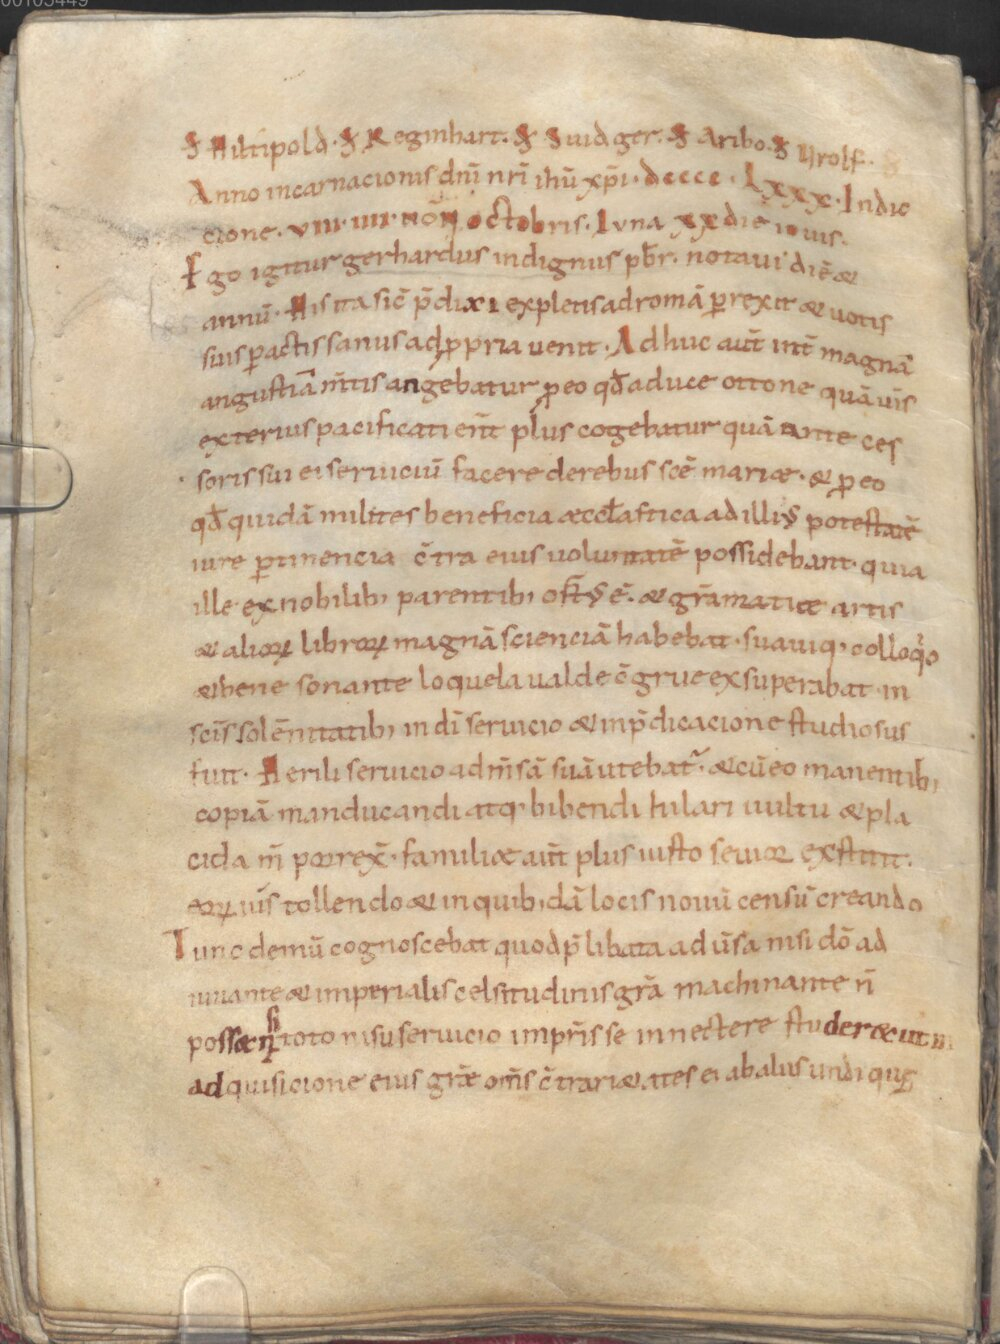 00105449
Hiltipold. Reginhart. Suidger. Aribo. Urolf.
Anno incarnacionis dn̄i nr̄i ihū xp̄i. dcccc. Lxxx. Indic
cione. viii. iiii. noñ. octobris. Luna xx die iouis.
Ego igitur gerhardus indignus pbr̄. notaui diē &
annū. His ita sic̄ p̄dixi expletis ad romā perrexit & uotis
suis peractis sanus ad propria uenit. Adhuc aut̄ int̄ magnā
angustiā m̄tis angebatur pro eo qđ aduce ottone quāuis
exterius pacificati er̄nt plus cogebatur quā ante ces
soris sui ei seruiciū facere de rebus scē mariæ. & pro eo
qđ quidā milites beneficia æccłastica ad illius potestatē
iure pertinencia c̄tra eius uoluntatē possidebant. quia
ille ex nobilib; parentib; ort; ē. & grāmaticæ artis
& alioꝝ libroꝝ magnā scienciā habebat. suauiq; colloq̇o
& bene sonante loquela ualde c̄grue exsuperabat. in
scīs solēnitatib; in dī seruicio & in p̄dicacione studiosus
fuit. Herili seruicio ad m̄sā suā utebat᷑. & cū eo manentib;
copiā manducandi atq; bibendi hilari uultu & pla
cida m̄ porrex̄. familiæ aut̄ plus iusto seuior exstitit.
eoꝝ iūs tollendo & in quib;dā locis nouū censū creando
Tunc demū cognoscebat quod p̄libata aduersa nisi dō ad
iuuante & imperialis celsitudinis gr̄a machinante n̄
possæ toto nisu seruicio impr̄is se innectere studeræ ut in
adquisicione eius grāe om̄s c̄trari&ates ei ab alus undique